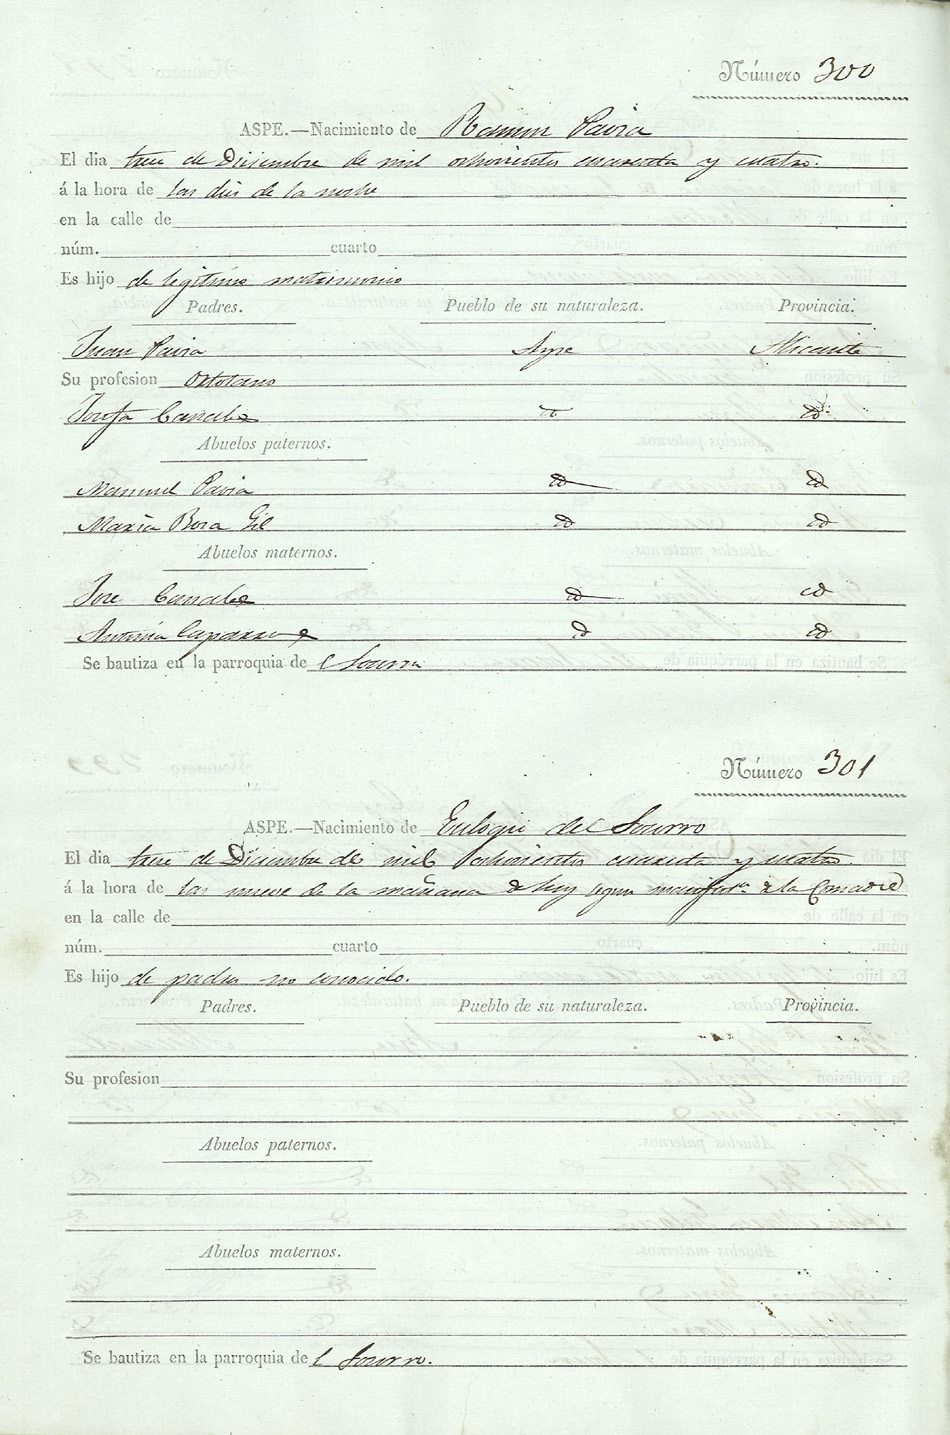 Número 300
ASPE.—Nacimiento de Ramon Pavia
El dia trece de Diciembre de mil ochocientos cuarenta y cuatro.
á la hora de las dies de la noche
en la calle de
núm. cuarto
Es hijo de legitimo matrimonio
Padres. Pueblo de su naturaleza. Provincia.
Juan Pavia Aspe Alicante
Su profesion Ortolano
Josefa Canals id
Abuelos paternos.
Manuel Pavia id id
Maria Rosa Gil id id
Abuelos maternos.
Jose id id
Antonia id id
Se bautiza en la parroquia de l Socorro
Número 301
ASPE.—Nacimiento de Eulogio del Socorro
El dia trece de Diciembre de mil ochocientos cuarenta y cuatro.
á la hora de las nueve de la mañana de hoy segun de la Comadre
en la calle de
núm. cuarto
Es hijo de padres no conocido.
Padres. Pueblo de su naturaleza. Provincia.
Su profesion
Abuelos paternos.
Abuelos maternos.
Se bautiza en la parroquia de l Socorro.